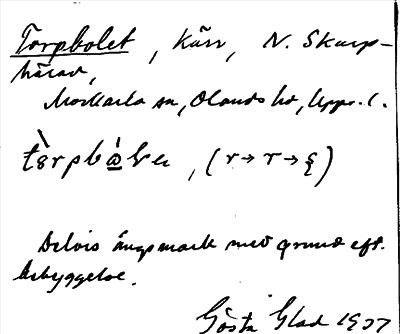 Torpbolet, Kärr, N. Skarp-
härad,
Morkarla sn, Olands hd, Upps. l.
(r→r→ȿ)
Delvis ängsmark med grund eft.
bebyggelse.
Gösta Glad 1937